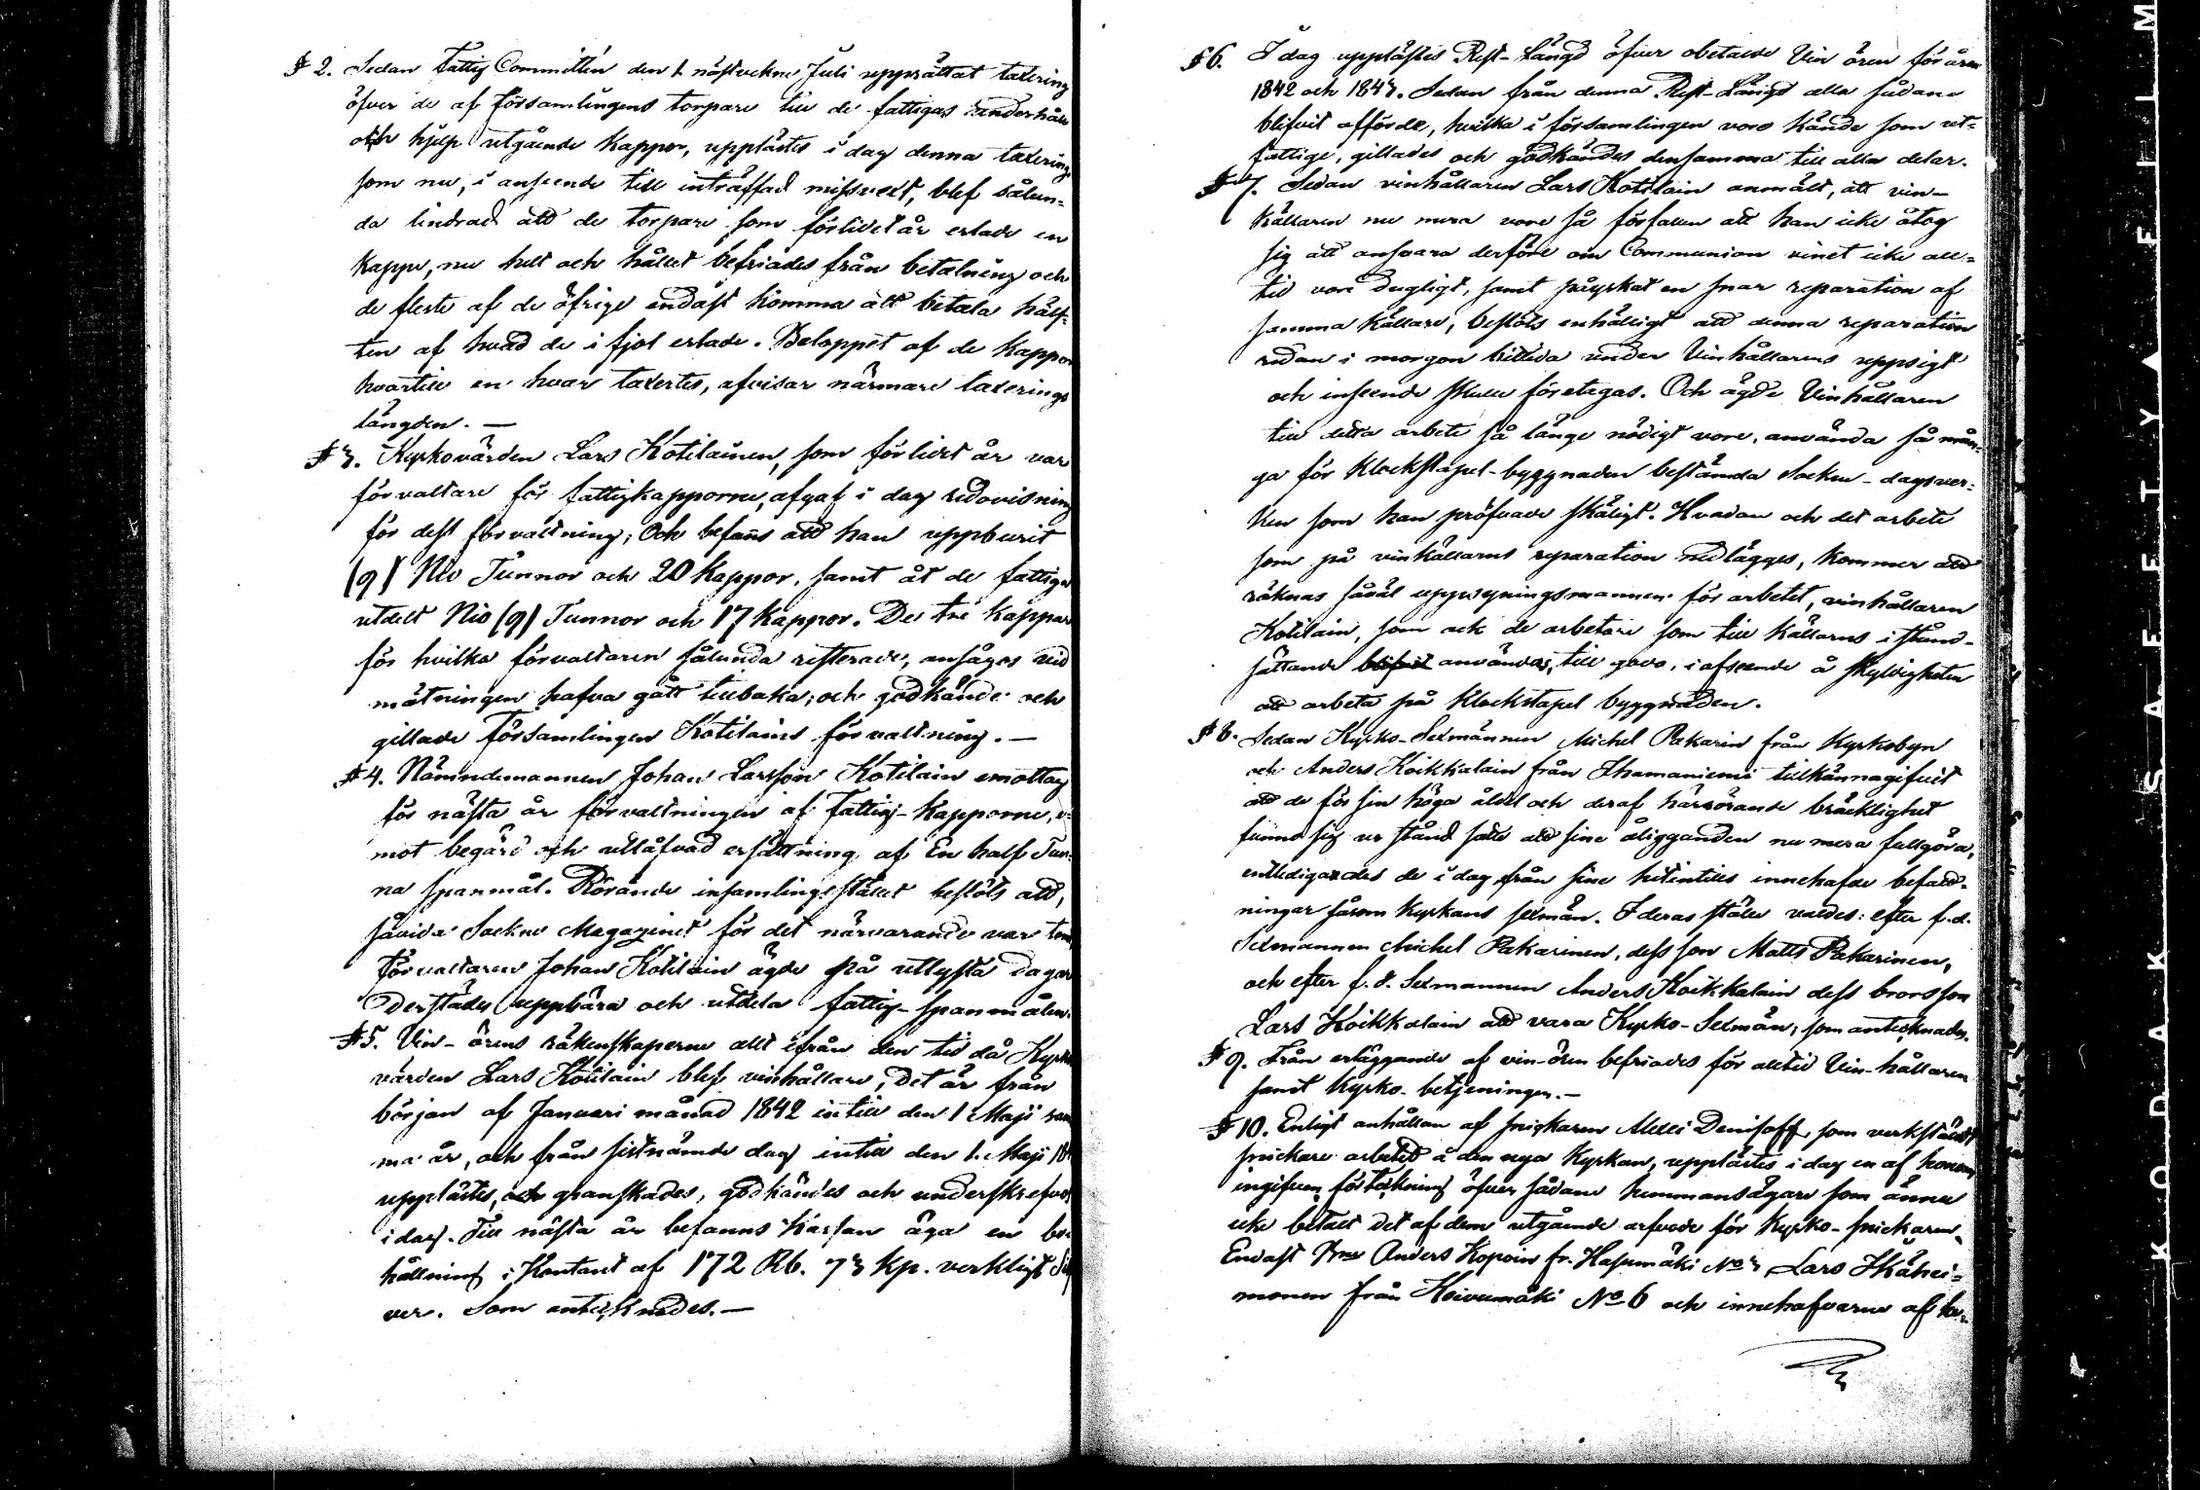 § 2. Sedan Fattig Committén den 1 nästvekne Juli upprättat taxering
öfver de af Församlingens torpare till de fattigas underhåll
och hjelp utgående Kappor, upplästes i dag denna taxering
som nu, i anseende till inträffad missvext, blef sålun-
da lindrad att de torpare som förlidet år erlade en
Kappe, nu helt och hållet befriades från betalning och
de fleste af de öfrige endast komma att betala hälf-
ten af hvad de i fjol erlade. Beloppet af de Kappor
hvartill en hvar taxertes, utvisar närmare taxerings
längden. —
§ 3. Kyrkovärden Lars Kotilainen, som förlidet år var
förvaltare för fattigkapporne, afgaf i dag redovisning
för dess förvaltning; Och befans att han uppburit
(9) Nio Tunnor och 20 Kappor, samt åt de fattiga
utdelt Nio (9) Tunnor och 17 Kappor. De tre Kappar
för hvilka förvaltaren sålunda resterade, ansågos vid
mätningen hafva gått tillbaka; och godkände och
gillade Församlingen Kotilains förvaltning. —
§ 4. Nämndemannen Johan Larsson Kotilain emottag
för nästa år förvaltningen af Fattig-Kapporne,
mot begärd och utlåfvad ersättning af En half Tun-
na spanmål. Rörande insamlingsstället beslöts att,
såvida Sockne Magazinet för det närvarande var tom
Förvaltaren Johan Kotilain ägde på utlysta dagar
Derstädes uppbära och utdela fattig-spanmålen.
§ 5. Vin-örens räkenskaperne allt ifrån den tid då Kyrko
värden Lars Kotilain blef vinhållare, det är från
början af Januari månad 1842 intill den 1 Maji sam
ma år, och från sistnämde dag intill den 1. Maji 18
upplästes, och granskades, godkändes och underskrefvos
i dag. Till nästa år befanns Kassan äga en be-
hållning i Kontant af 172 Rb. 73 Kp. verkligt Sil
ver. Som antecknades. —
§ 6. I dag upplästes Rest-Längd öfver obetalde Vin ören för åren
1842 och 1843. Sedan från denna Rest-Längd alla sådane
blifvit afförde, hvilka i församlingen voro kände som ut-
fattige, gillades och godkändes densamma till alla delar.
§ 7. Sedan vinhållaren Lars Kotilain anmält, att vin-
källaren nu mera vore så förfallen att han icke åtog
sig att ansvara derföre om Communion vinet icke all-
tid vore dugligt, samt påyrkat en snar reparation af
samma källare, beslöts enhälligt att denna reparation
redan i morgon bittida under Vinhållarens uppsigt
och inseende skulle företagas. Och ägde Vinhållaren
till detta arbete så länge nödigt vore, använda så mån-
ga för Klockstapel-byggnaden bestämda Socken-dagsver-
ken som han pröfvade skäligt. Hvadan och det arbete
som på vinkällarns reparation nedlägges, kommer att
räknas såväl uppsyningsmannen för arbetet, vinhållaren
Kotilain, som ock de arbetare som till källarns istånd-
sättande användas, till godo, i afseende å skyldigheten
att arbeta på Klockstapel byggnaden.
§ 8. Sedan Kyrko-Sexmännen Michel Pakarin från Kyrkobyn
och Anders Koikkalain från Ihamaniemi tillkännagifvit
att de för sin höga ålder och deraf härrörande bräcklighet
funno sig ur stånd satte att sine åligganden nu mera fullgöra,
entledigades de i dag från sine hitintills innehafde befatt-
ningar såsom Kyrkans sexmän. I deras ställe valdes: efter f.d.
Sexmannen Michel Pakarinen, dess son Matts Pakarinen,
och efter f.d. Sexmannen Anders Koikkalain dess brorsson
Lars Koikkalain att vara Kyrko-Sexmän; som antecknades.
§ 9. Från erläggande af vin-ören befriades för alltid Vin-hållaren
samt Kyrko-betjeningen. —
§ 10. Enligt anhållan af snickaren Alexei Denisoff, som verkställt
snickare arbetet å den nya Kyrkan, upplästes i dag en af honom
ingifven förtekning öfver sådane hemmansägare som ännu
icke betalt det af dem utgående arfvode för Kyrko-snickaren.
Endast Anders Kopoin fr. Hasumäki No 3, Lars Ikähei-
monen från Koivumäki No 6 och innehafvarne af